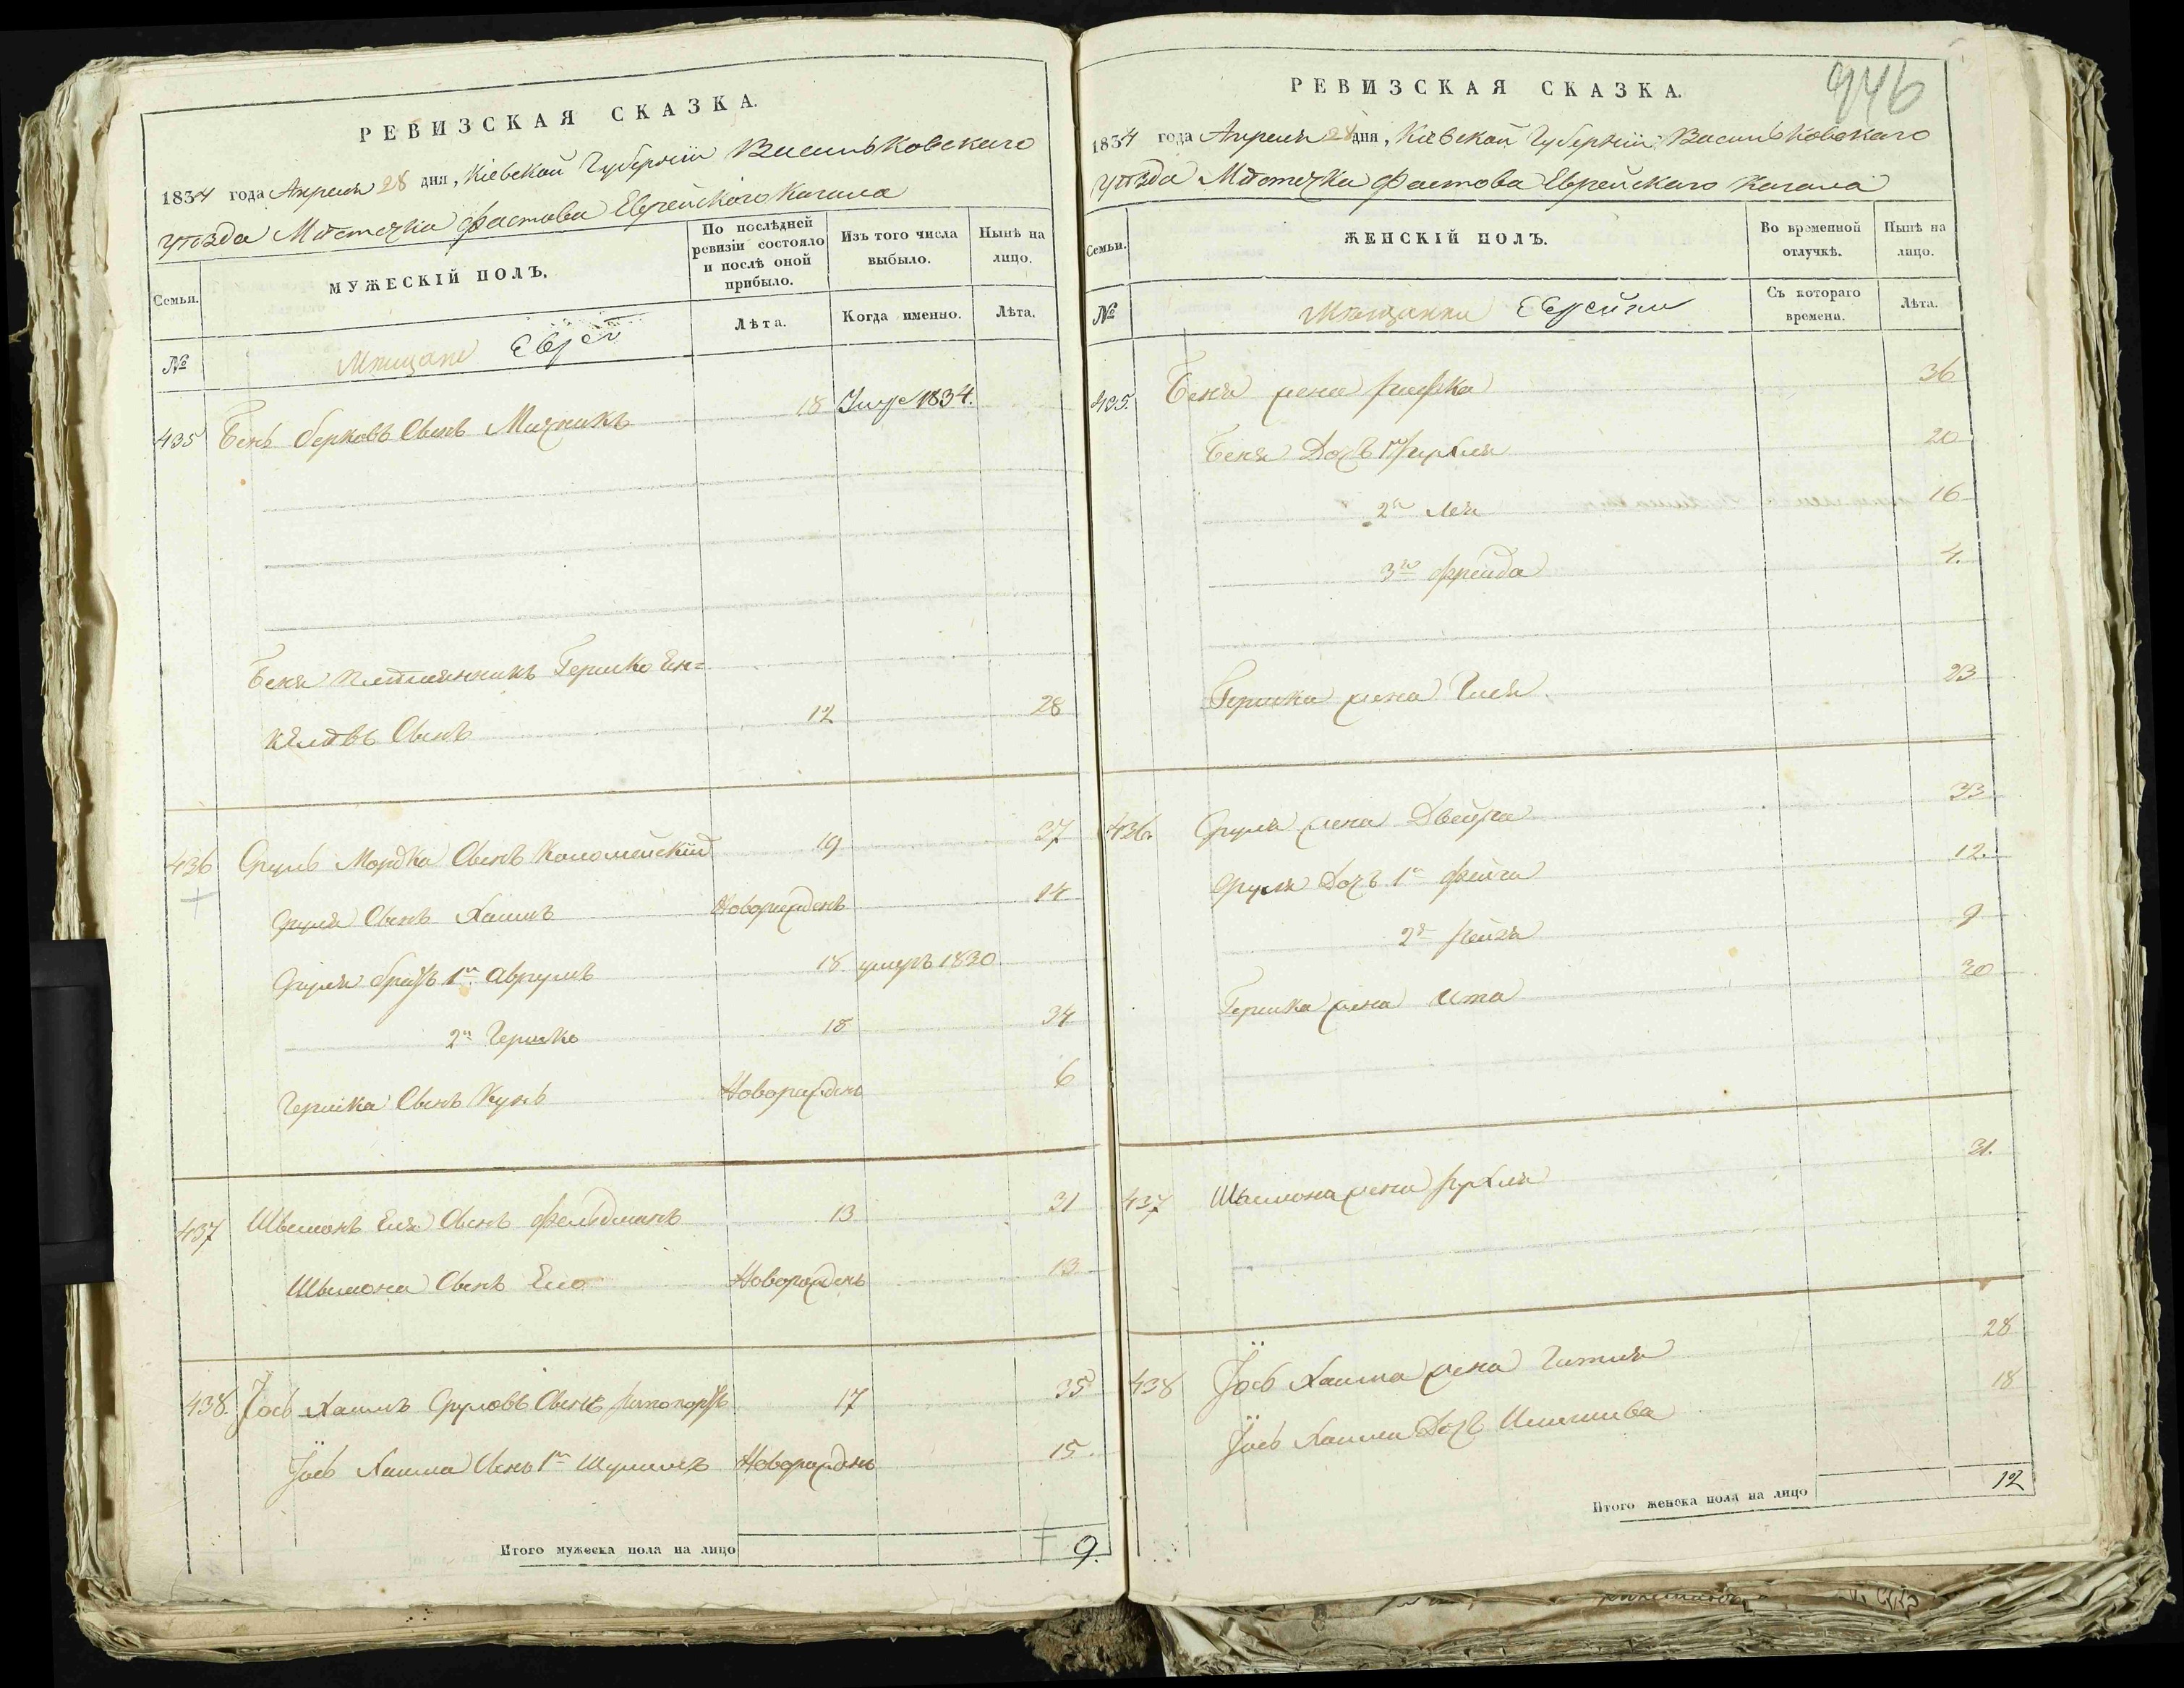 РЕВИЗСКАЯ СКАЗКА.
1834 года Апреля 28 дня, Кіевской Губерніи Васильковскаго
уѣзда Мѣстечка Фастова Еврейского Кагала
Семьи.
МУЖЕСКІЙ ПОЛЪ.
По послѣдней ревизіи состояло и послѣ оной прибыло.
Изъ того числа выбыло.
Нынѣ на лицо.
№
Мѣщане Евреи
Лѣта.
Когда именно.
Лѣта.
435 Бень Берковъ Сынъ 18 1834.
Беня племянникъ Гершко Ен=
келевъ Сынъ 12 28
436 Сруль Мордка Сынъ Коломейскій 19 37
Сруля Сынъ Хаимъ Новорожденъ 14
Сруля братъ 1й Аврумъ 18 умеръ 1830
2й Гершко 18 34
Гершка Сынъ Кунь Новорожденъ 6
437 Шлемонъ Еля Сынъ Фельдманъ 13 31
Шлемона Сынъ Ело Новорожденъ 13
438. Іось Хаимъ Сруловъ Сынъ 17 35
Іось Хаима Сынъ 1й Шулимъ Новорожденъ 15
Итого мужеска пола на лицо 9.
946
РЕВИЗСКАЯ СКАЗКА.
1834 года Апреля 28 дня, Кіевской Губерніи Васильковскаго
уѣзда Мѣстечка Фастова Еврейскаго Кагала
Семьи.
ЖЕНСКІЙ ПОЛЪ.
Во временной отлучкѣ.
Нынѣ на лицо.
№
Мѣщанки Еврейки
Съ котораго времени.
Лѣта.
435. Беня жена Рифка 36
Беня Дочь 20
2я Лея 16
3я Фрейда 4.
Гершка жена 23
436. Сруля жена Двейра 33
Сруля Дочь 1я Фейга 12.
2я Рейзя 9
Гершка жена Ита 30
437 Шлемона жена Рухля 31.
438 Іось Хаима жена Гитля 28
Іось Хаима Дочь 18
Итого женска пола на лицо 12